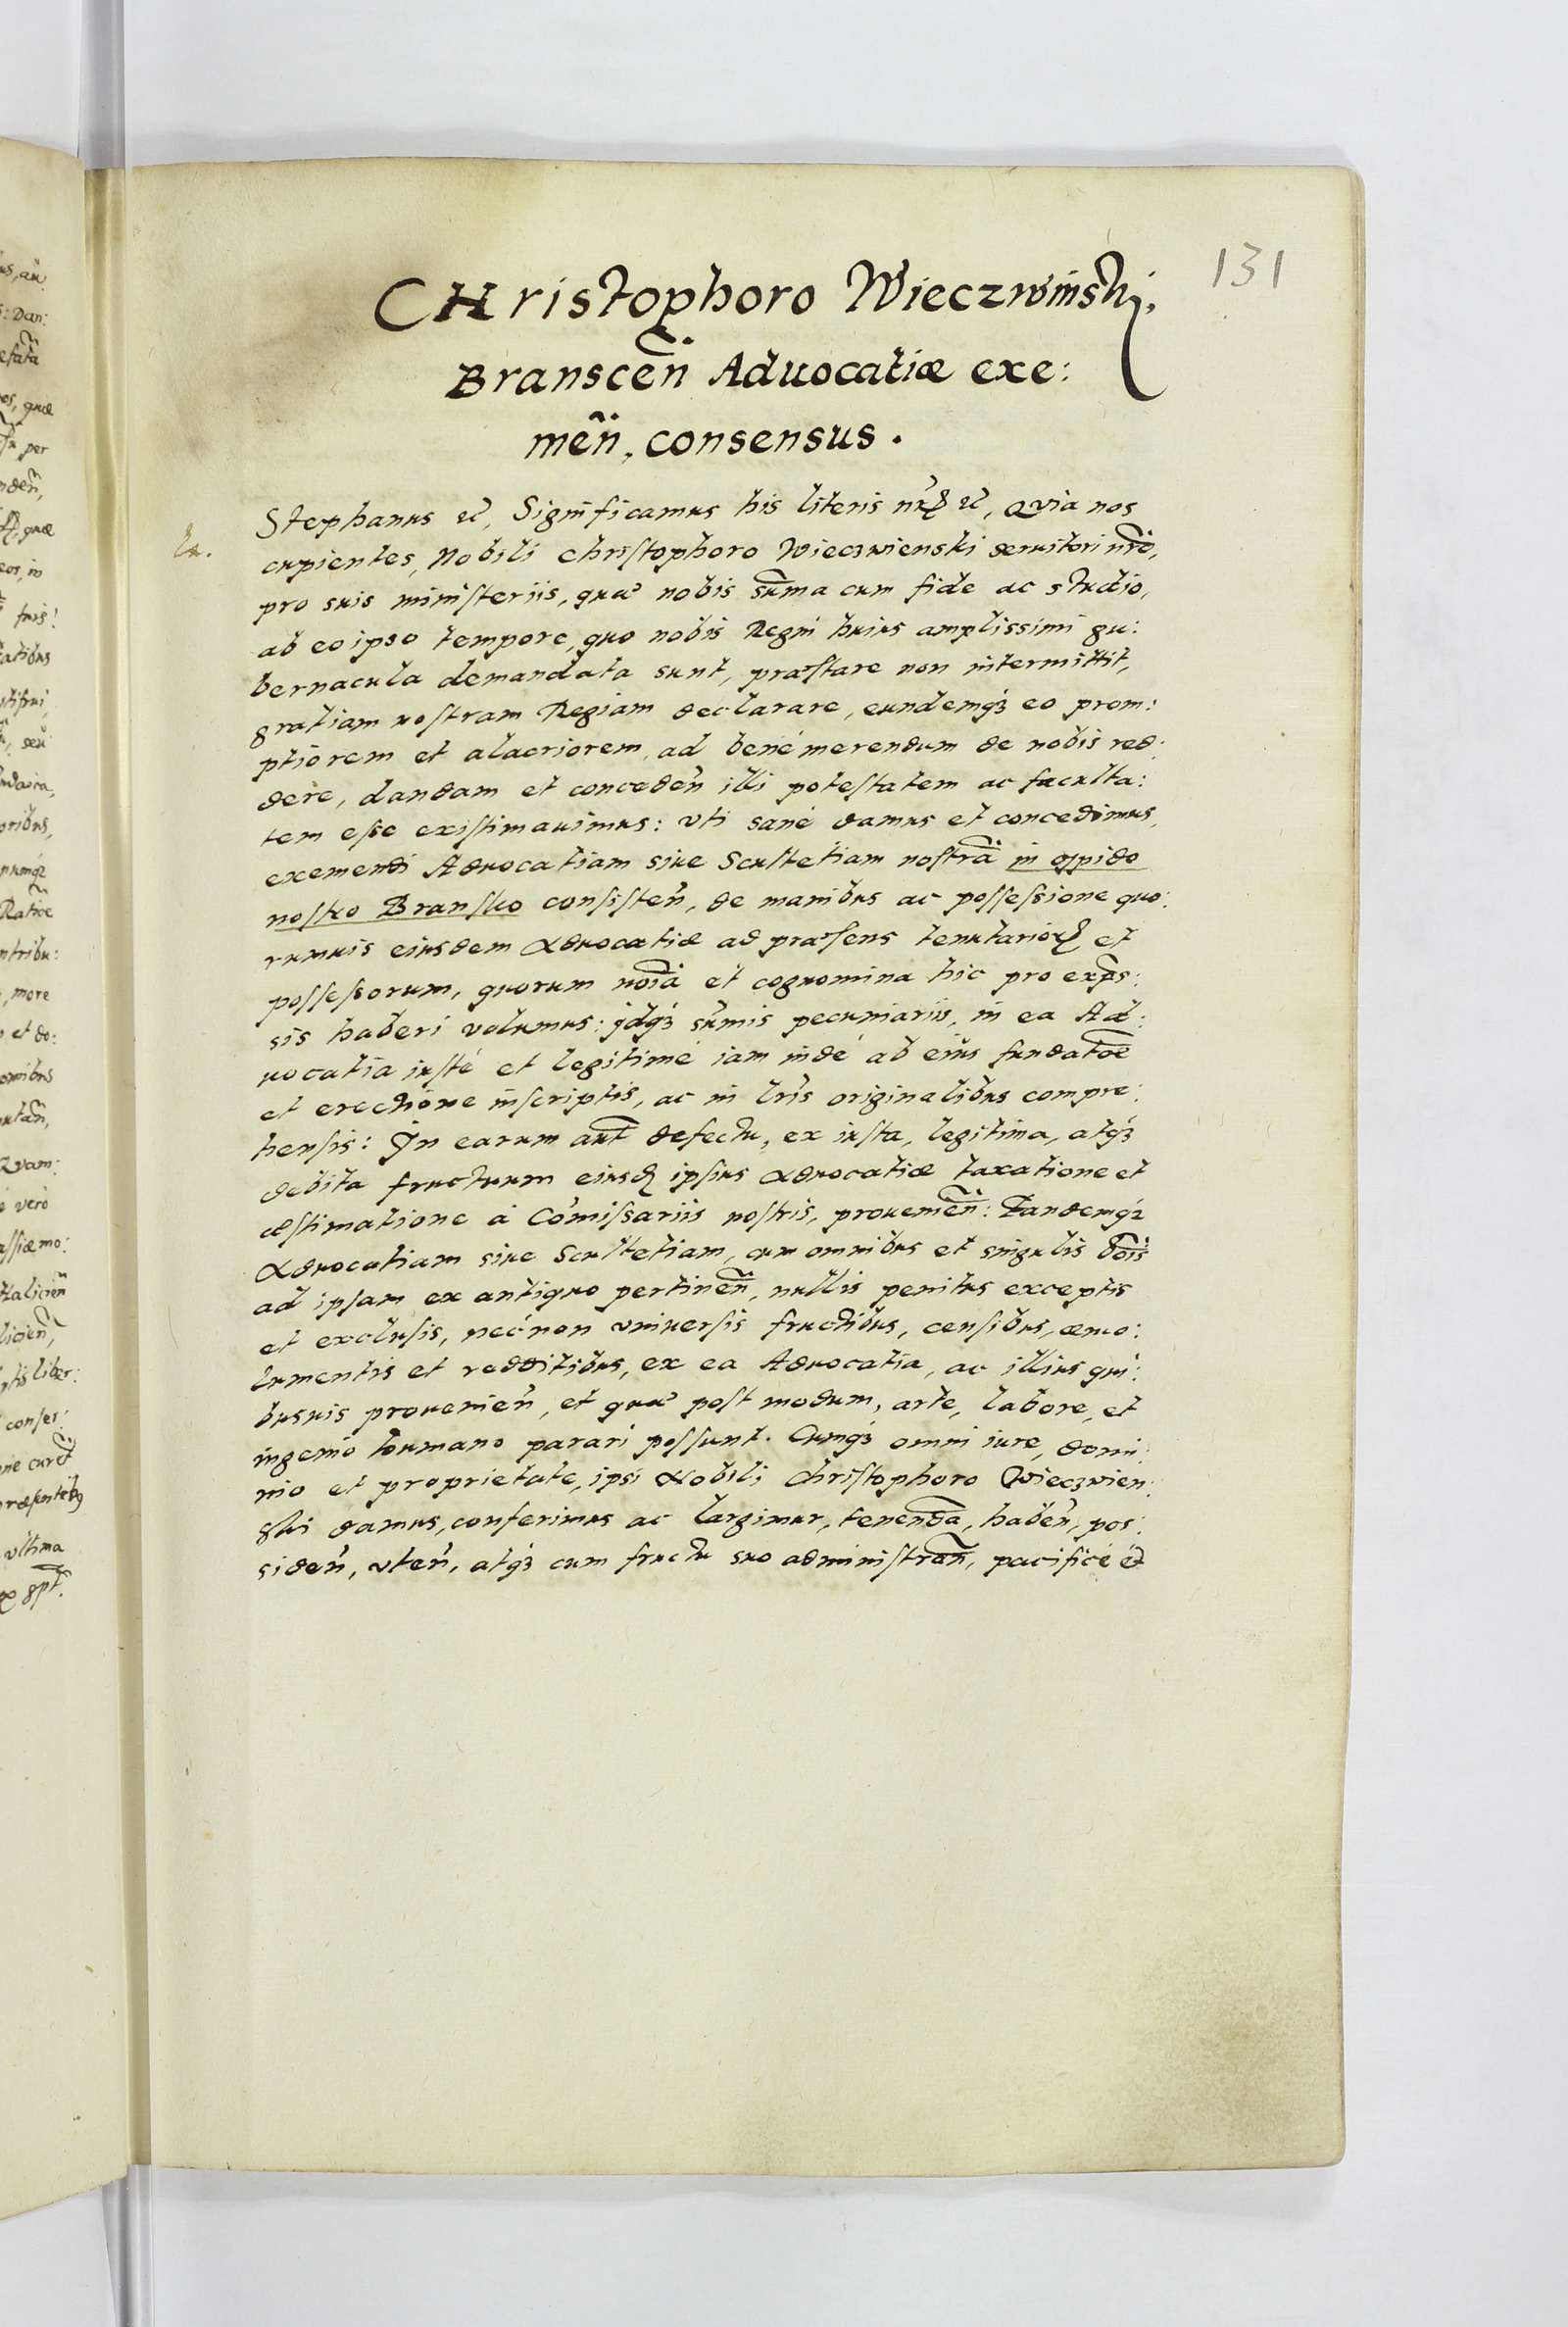 131
CHristophoro Wieczwinski,
Branscen̄ Aduocatiæ exe:
men̄, consensus.
Stephanus etc, Significamus his literis nr̃ꝝ etc, Quia nos
cupientes, Nobili Christophoro Wieczwienski seruitori nr̃o,
pro suis ministeriis, quæ nobis sum̃a cum fide ac studio,
ab eo ipso tempore, quo nobis Regni huius amplissimi gu:
bernacula demandata sunt, præstare non intermittit,
gratiam nostram Regiam declarare, eundemq́ꝫ eo prom:
ptiorem et alacriorem, ad bené merendum de nobis red:
dere, dandam et conceden̄ illi potestatem ac faculta:
tem esse existimauimus: vti sané damus et concedimus,
exemendi Aduocatiam siue Scultetiam nostrā in oppido
nostro Bransko consisten̄, de manibus ac possessione quo:
rumuis eiusdem Aduocatiæ ad præsens tenutarioꝝ et
possessorum, quorum noĩa et cognomina hic pro exp̃s:
sis haberi volumus: jdq́ꝫ sum̃is pecuniariis, in ea Ad:
uocatia iusté et legitimé iam indé ab eius fundatõe
et erectione inscriptis, ac in lr̃is originalibus compre:
hensis: In earum aut̃ defectu, ex iusta, legitima, atq́ꝫ
debita fructuum eiusd̃ ipsius Aduocatiæ taxatione et
æstimatione á Com̃issariis nostris, prouenien̄: Eandemq́ꝫ
Aduocatiam siue Scultetiam, cum omnibus et singulis bõis
ad ipsam ex antiquo pertinen̄, nullis penitus exceptis
et exclusis, nećnon vniuersis fructibus, censibus, æmo:
lumentis et redditibus, ex ea Aduocatia, ac illius qui:
busuis prouenien̄, et quæ post modum, arte, labore, et
ingenio humano parari possunt. Cumq́ꝫ omni iure, domi:
nio et proprietate, ipsi Nobili Christophoro Wieczwien:
ski damus, conferimus ac largimur, tenenda, haben̄, pos:
siden̄, vten̄, atq́ꝫ cum fructu suo administran̄, pacificé et